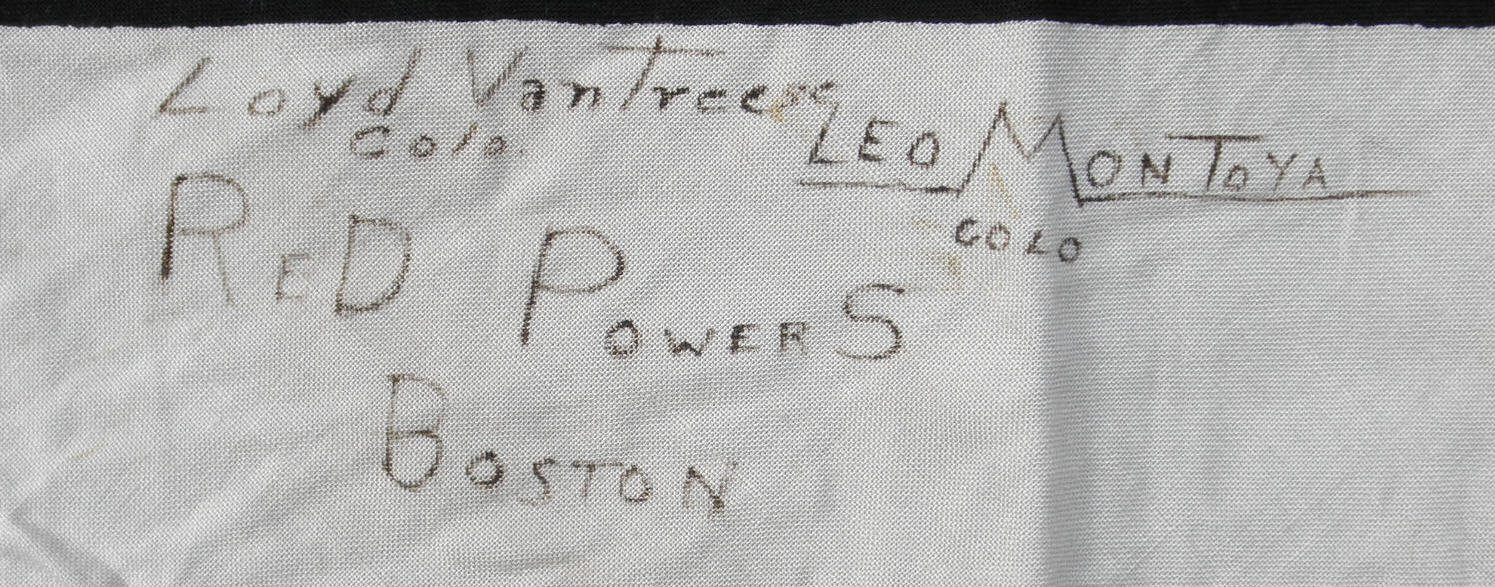 Loyd VanTreese
Colo.
LEO MONTOYA
COLO
RED POWERS
BOSTON